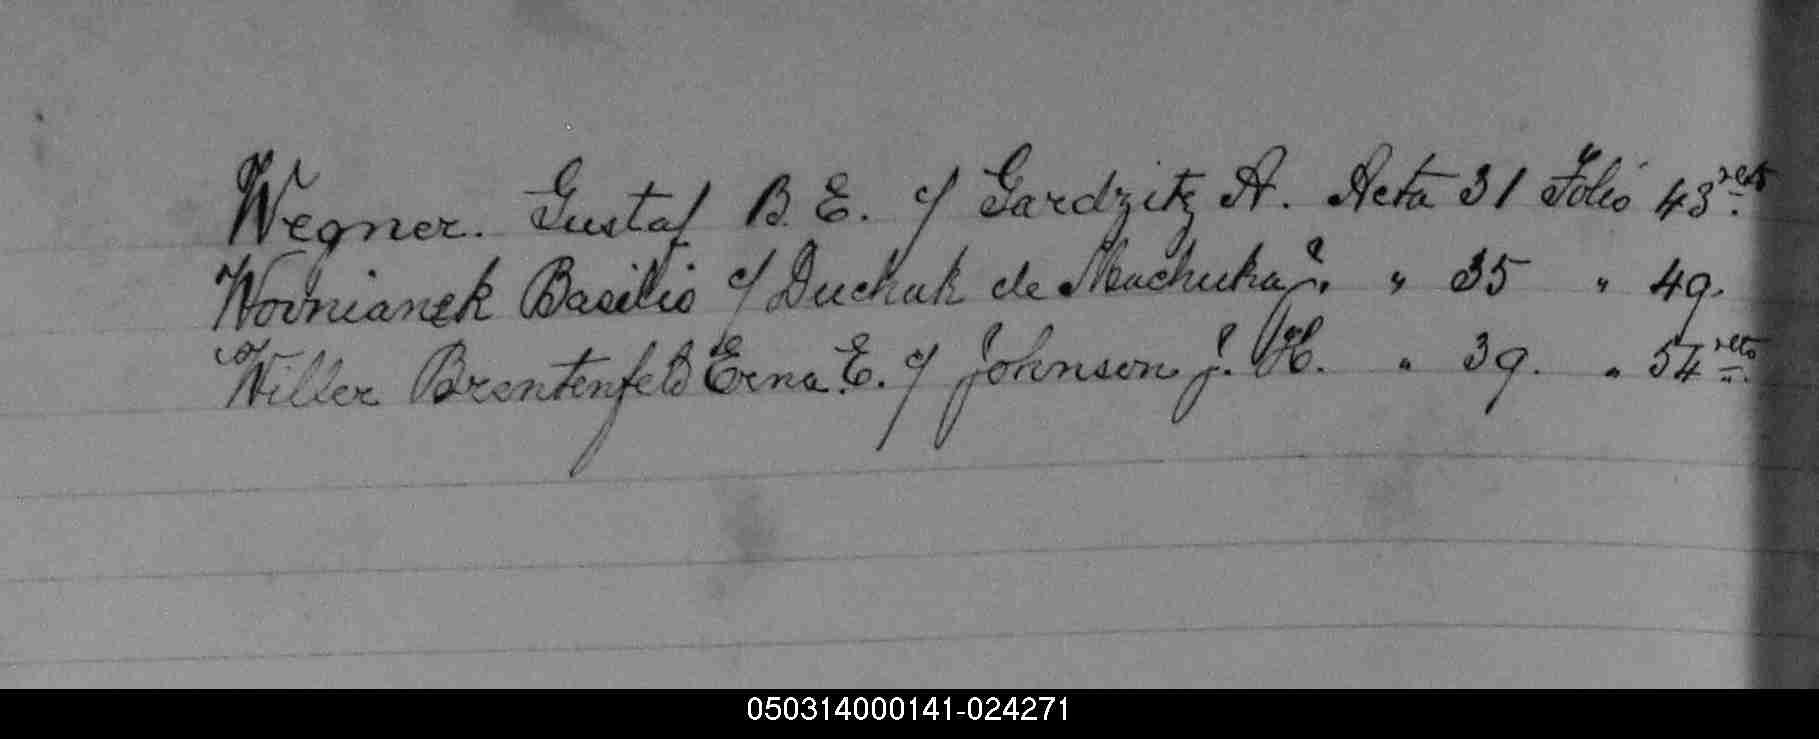 Wegner. Gustaf B. E. c/ Gardzitz A. Acta 31 Folio 43 vto.
Wovnianek Basilio c/ Duchak de Machuka J. " 35 " 49.
Willer Brentenfeld Erna E. c/ Johnson J. H. " 39. " 54 vto.
050314000141-024271